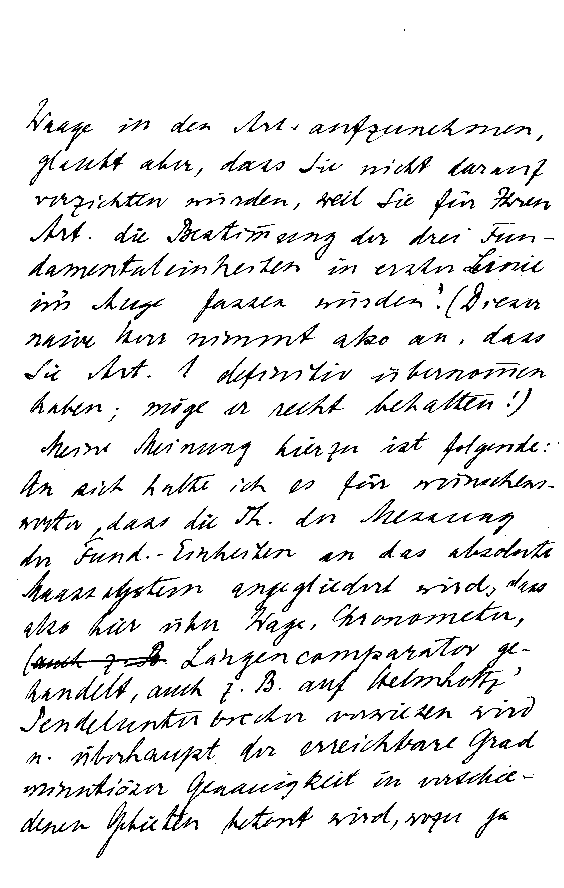 Waage in den Art. aufzunehmen,
glaubt aber, dass Sie nicht darauf
verzichten würden, weil Sie für Ihren
Art. die Bestim̄ung der drei Fun-
damentaleinheiten in erster Linie
in's Auge fassen würden! (Dieser
naive Herr nimmt also an, dass
Sie Art. 1 definitiv übernom̄en
haben; möge er recht behalten!)
Meine Meinung hierzu ist folgende:
An sich halte ich es für wünschens-
werter, dass die Th. der Messung
der Fund.-Einheiten an das absolute
Maasssystem angegliedert wird, dass
also hier über Wage, Chronometer,
(auch z. B. Längencomparator ge-
handelt, auch z. B. auf Helmholtz'
Pendelunterbrecher verwiesen wird
u. überhaupt der erreichbare Grad
minutiöser Genauigkeit in verschie-
denen Gebieten betont wird, wozu ja